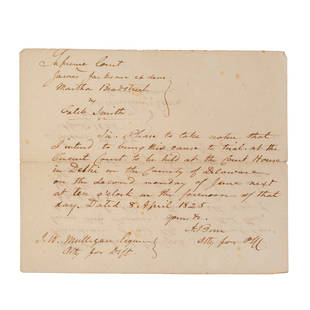 Supreme Court
James Jackson ex dem
Martha Bradstreet
vs
Caleb Smith
Sir. Please to take notice that
I intend to bring this cause to trial at the
Circuit Court to be held at the Court House
in Delhi in the County of Delaware
on the second monday of June next
at ten o'clock in the forenoon of that
day. Dated 8 April 1825.
Yours &c.
Atty for Plff
J. W. Mulligan Esquire
Atty for Deft.